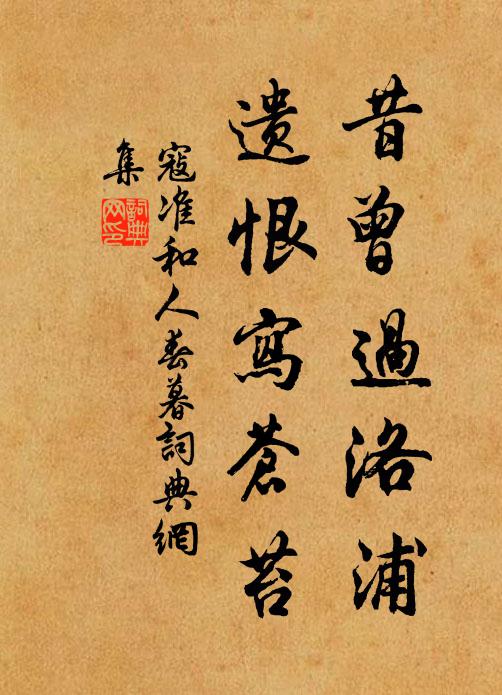 昔曾過洛浦
遺恨寫蒼苔
寇准和人春暮詞典網
集
詞典網印